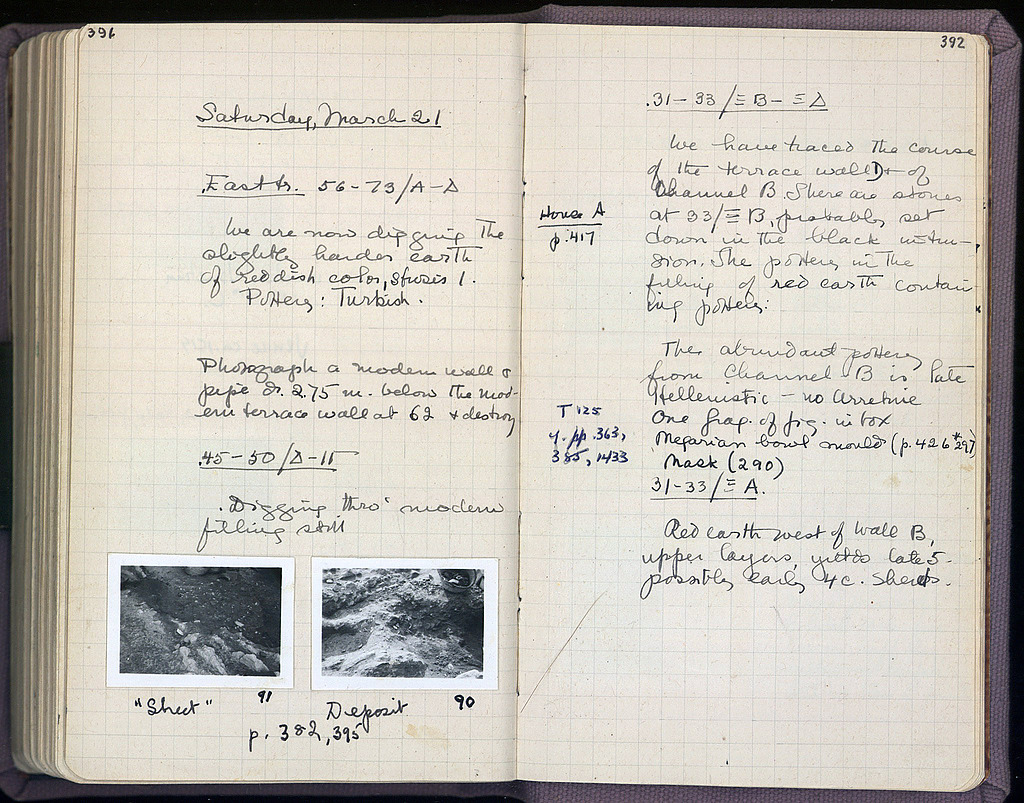 391
Saturday, March 21
East tr. 56-73/Α-Δ
We are now digging the
slightly harder earth
of reddish color, strosis 1.
Pottery: Turkish.
Photograph a modern wall &
pipe dr. 2.75 m. below the mod-
ern terrace wall at 62 & destroy
45-50/Δ-ΙΓ
Digging thro' modern
filling still
91
"Street"
90
Deposit
p. 382, 395
392
31-33/Ξ Β - Ξ Δ
We have traced the course
of the terrace wall D & of
Channel B. There are stones
at 33/Ξ Β, probably set
down in the black intru-
sion. The pottery in the
filling of red earth contain
ing pottery:
House A
p. 417
The abundant pottery
from Channel B is late
Hellenistic - no Arretine
One frag. of fig. in box
Megarian bowl mould (p. 426 #297)
Mask (290)
T 125
pp. 363,
385, 1433
31-33/Ξ Α.
Red earth west of wall B,
upper layers, yields late 5-
possibly early 4 c. sherds.